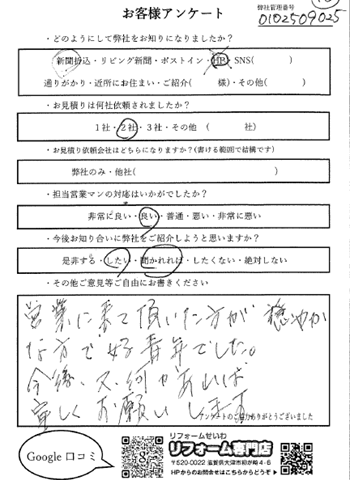 お客様アンケート
弊社管理番号
0102509025
・どのようにして弊社をお知りになりましたか?
新聞折込・リビング新聞・ポストイン・HP・SNS( )
通りがかり・近所にお住まい・ご紹介( 様)・その他( )
・お見積りは何社依頼されましたか?
1社・2社・3社・その他 ( 社)
・お見積り依頼会社はどちらになりますか?(書ける範囲で結構です)
弊社のみ・他社( )
・担当営業マンの対応はいかがでしたか?
非常に良い・良い・普通・悪い・非常に悪い
・今後お知り合いに弊社をご紹介しようと思いますか?
是非する・したい・聞かれれば・したくない・絶対しない
・その他ご意見等ご自由にお書きください
営業に来て頂いた方が 穏やか
な方で好青年でした。
今後、又、何かあれば
宜しくお願いします
アンケートのご協力ありがとうございました
Google 口コミ
リフォームせいわ
リフォーム専門店
〒520-0022 滋賀県大津市柳が崎4-6
HPからのお問合せはこちらからどうぞ